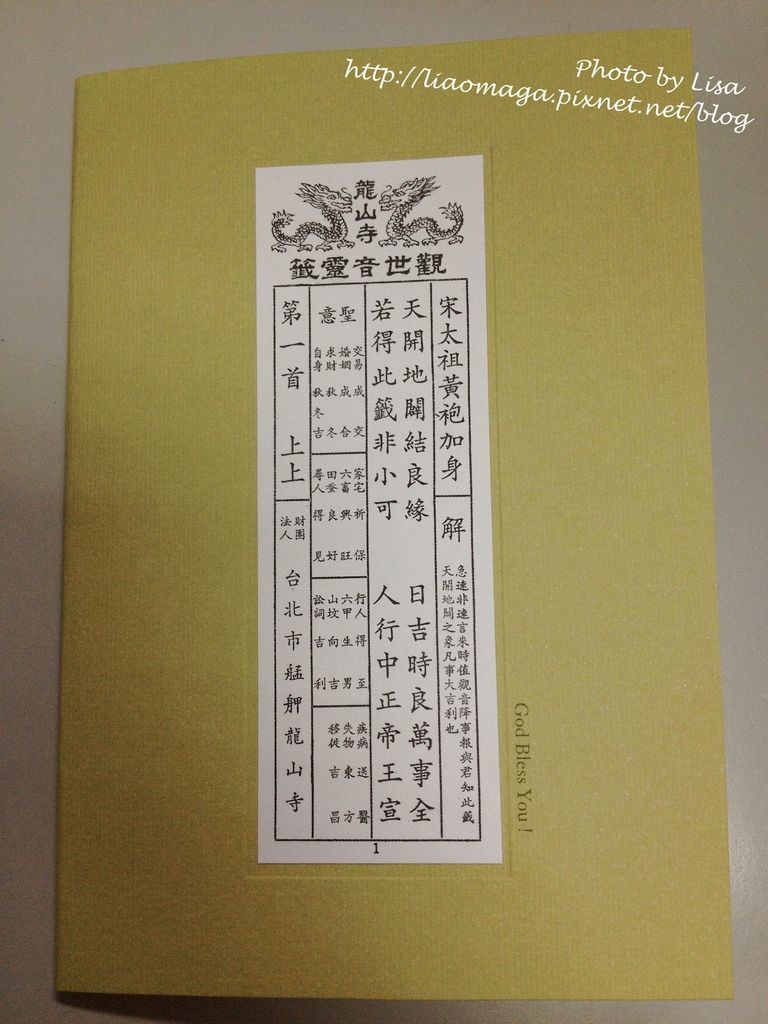 Photo by Lisa
http://liaomaga.pixnet.net/blog
龍山寺
觀世音靈籤
宋太祖黃袍加身
解
急速非速言來時值觀音降事報與君知此籤
天開地闢之象凡事大吉利也
天開地闢結良緣 日吉時良萬事全
若得此籤非小可 人行中正帝王宣
聖意
交易 成 交
婚姻 成 合
求財 秋 冬
自身 秋冬 吉
家宅 祈 保
六畜 興 旺
田蚕 良 好
尋人 得 見
行人 得 至
六甲 生 男
山坟 向 吉
訟詞 吉 利
疾病 送 醫
失物 東 方
移徙 吉 昌
第一首 上上
財團
法人
台北市艋舺龍山寺
1
God Bless You !